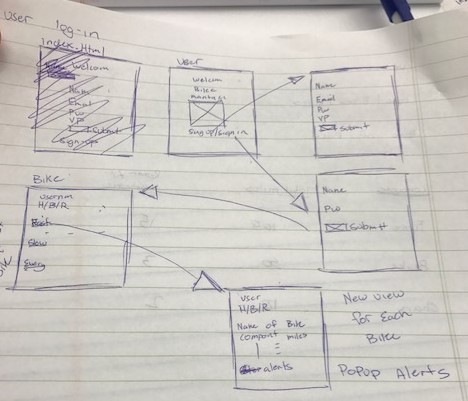 user log-in
Index.Html
Welcom
Name
Email
PW
VP
Submit
Sign up
User
Welcom
Bike
maintai
Sing up/sign in
Name
Email
PW
VP
Submit
Bike
usernm
H/B/R
Slow
Name
PW
Submit
user
H/B/R
Name of Bike
compont miles
alerts
New view
for Each
Bike
PoPup Alerts